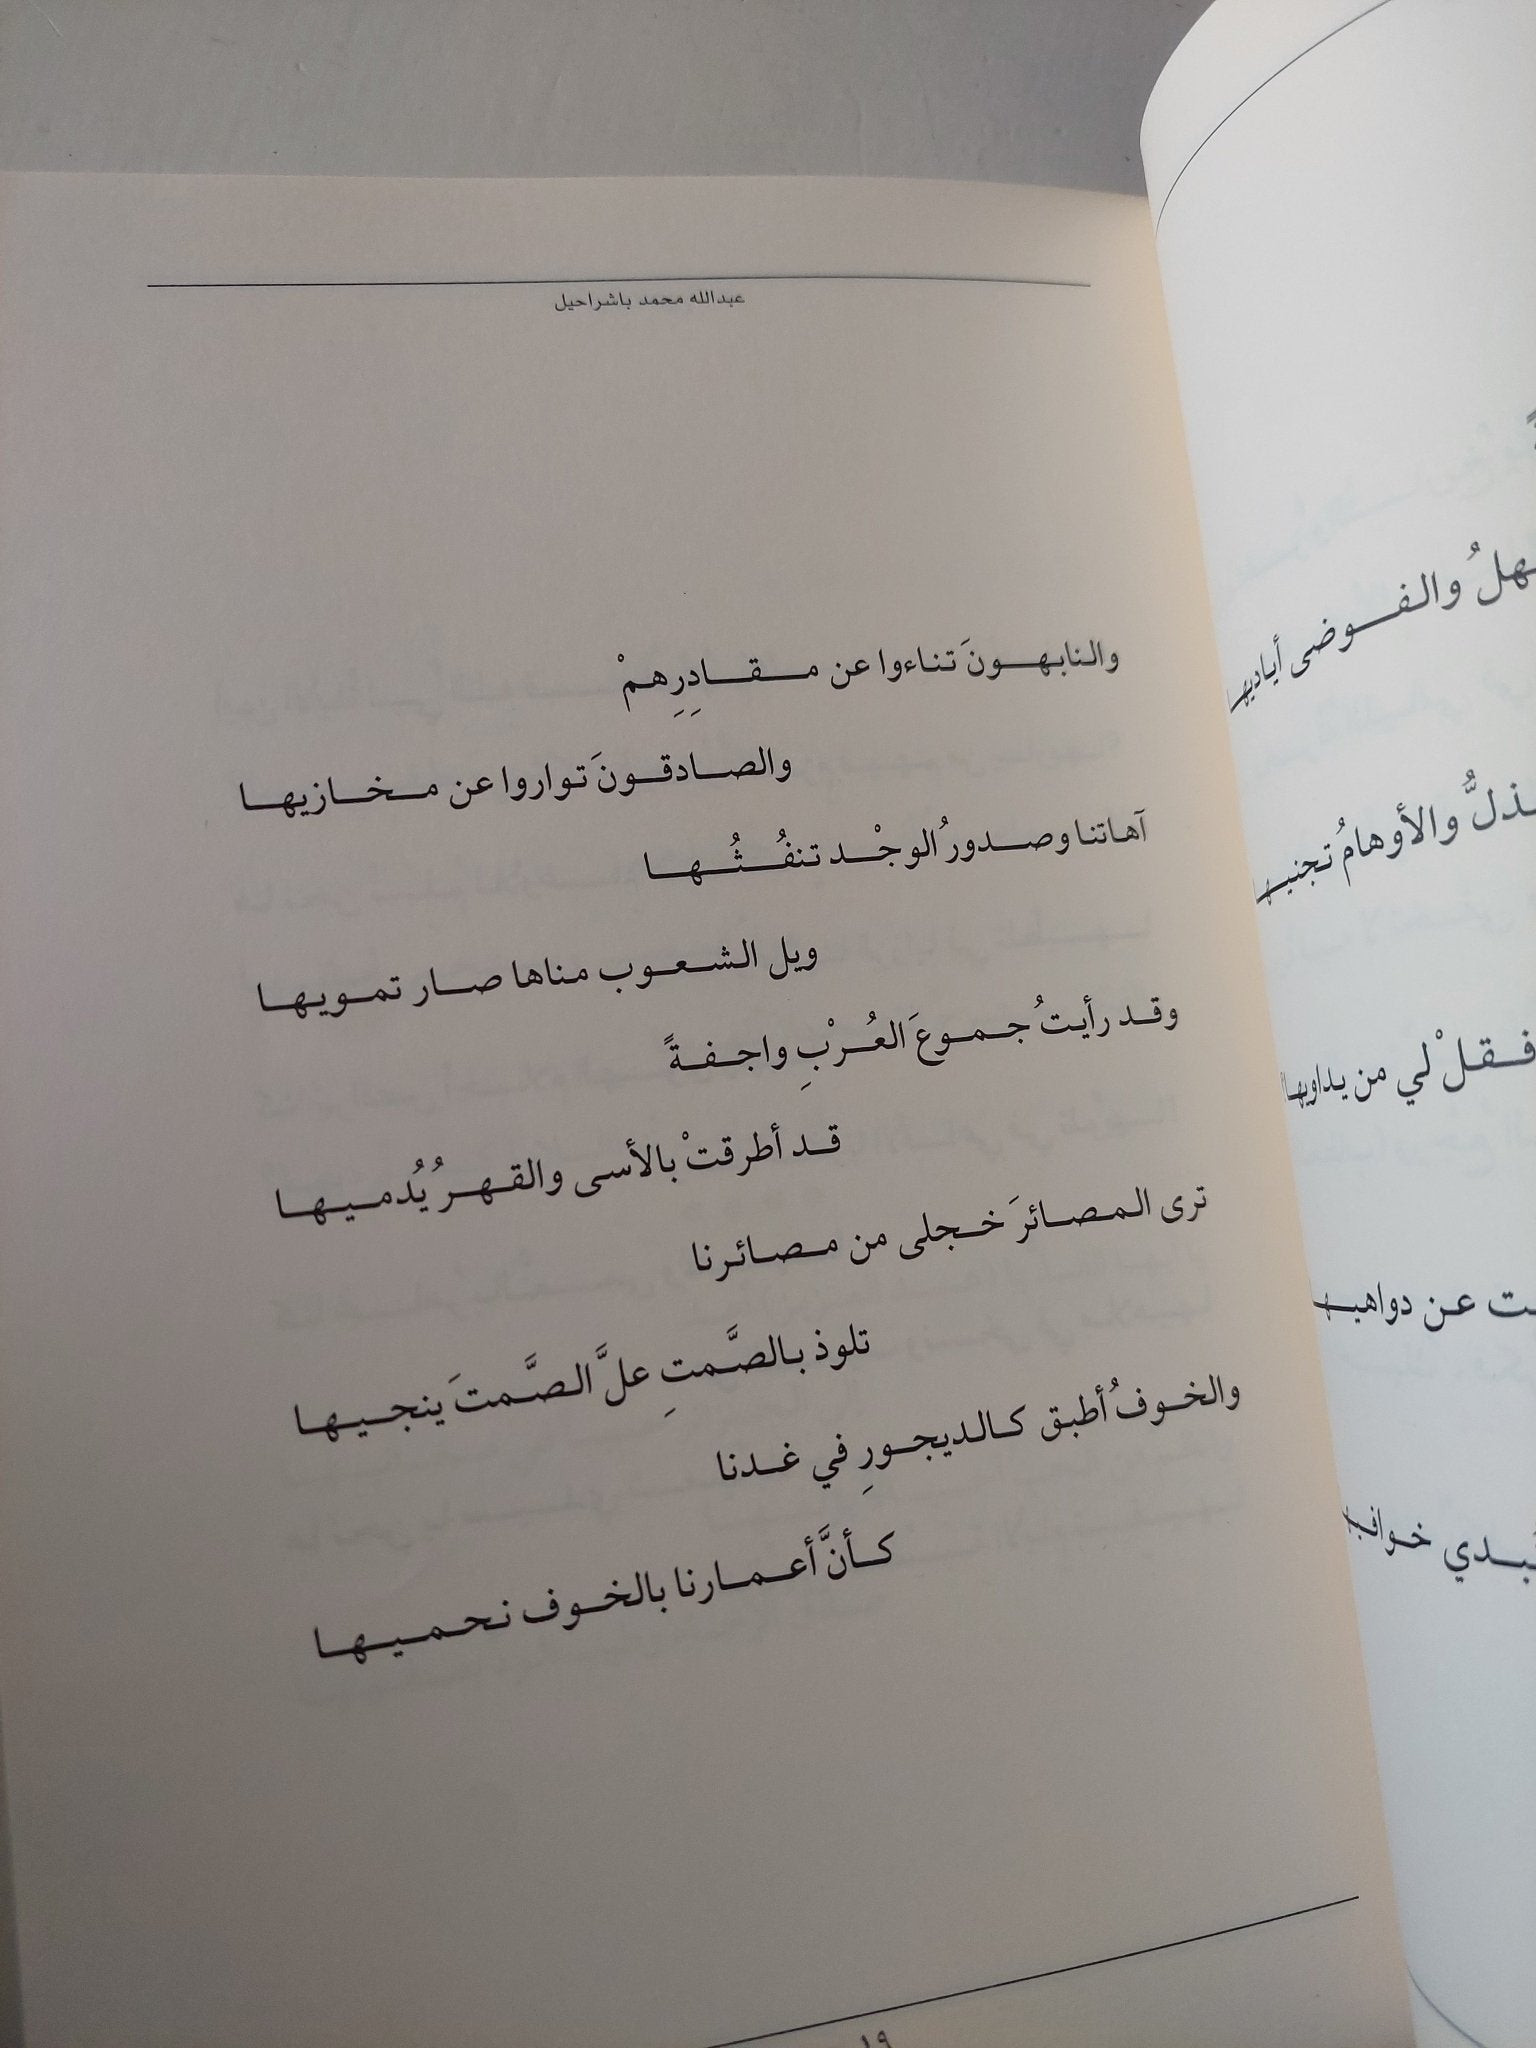 عبدالله محمد باشراحيل
والنابهونَ تناءوا عن مقادِرِهمْ
والصادقونَ تواروا عن مخازيها
آهاتنا وصدورُ الوجْد تنفُثُها
ويل الشعوب مناها صار تمويها
وقد رأيتُ جموعَ العُرْبِ واجفةً
قد أطرقتْ بالأسى والقهرُ يُدميها
ترى المصائرَ خجلى من مصائرنا
تلوذ بالصَّمتِ علَّ الصَّمتَ ينجيها
والخوفُ أطبق كالديجورِ في غدنا
كأنَّ أعمارنا بالخوف نحميها
١٩
والفوضى أياديها
والأوهامُ تجنيها
فقلْ لي من يداويها
عن دواهيها
خوافيها